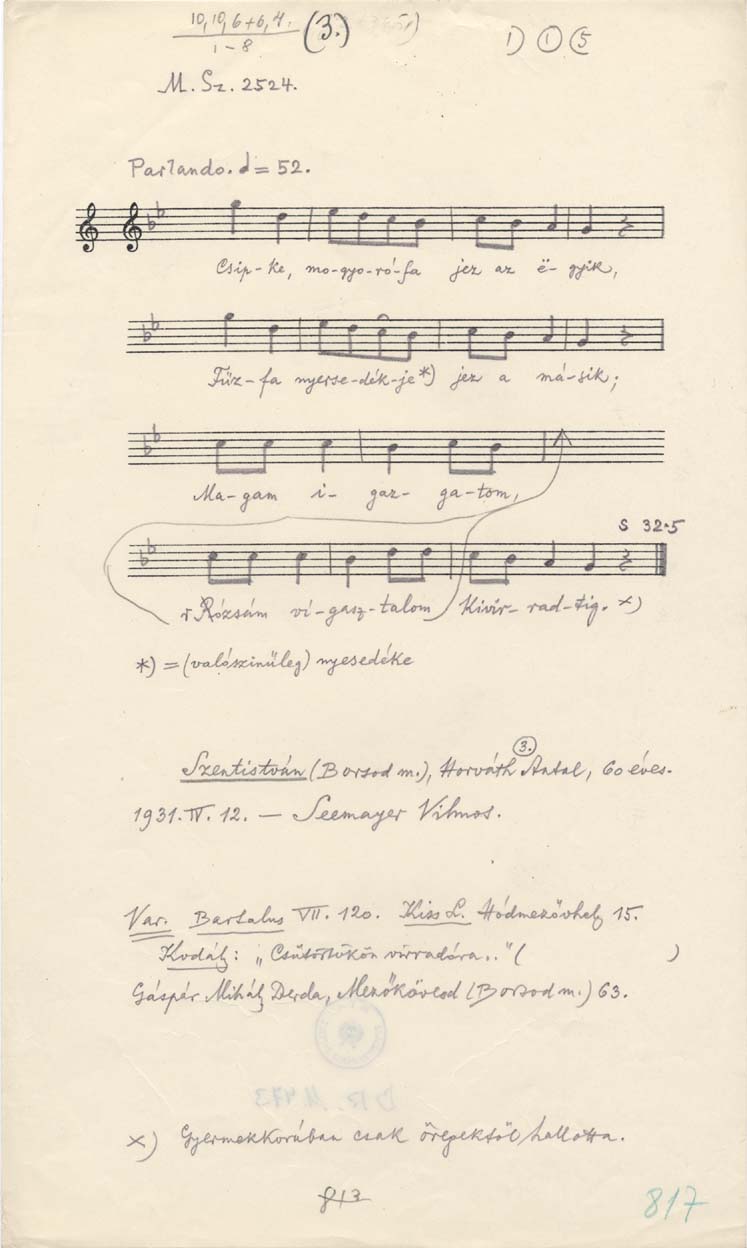 10, 10, 6+6, 4. (3.)
1-8
1) ① 5
M. Sz. 2524.
Parlando. = 52.
Csip-ke, mo-gyo-ró-fa jez az ë-gyik,
Fűz-fa nyerse-dék-je*) jez a má-sik;
Ma-gam i-gaz-ga-tom,
S 32·5
r Rózsám vi-gasz-talom Kivir-rad-tig. x)
*) = (valószinűleg) nyesedéke
3.
Szentistván (Borsod m.), Horváth Antal, 60 éves.
1931. IV. 12. — Seemayer Vilmos.
Var. Bartalus VII. 120. Kiss L. Hódmezővhely 15.
Kodály: „Csütörtökön virradóra.." ( )
Gáspár Mihály Derda, Mezőkövesd (Borsod m.) 63.
x) Gyermekkorában csak öregektől hallotta.
813
817